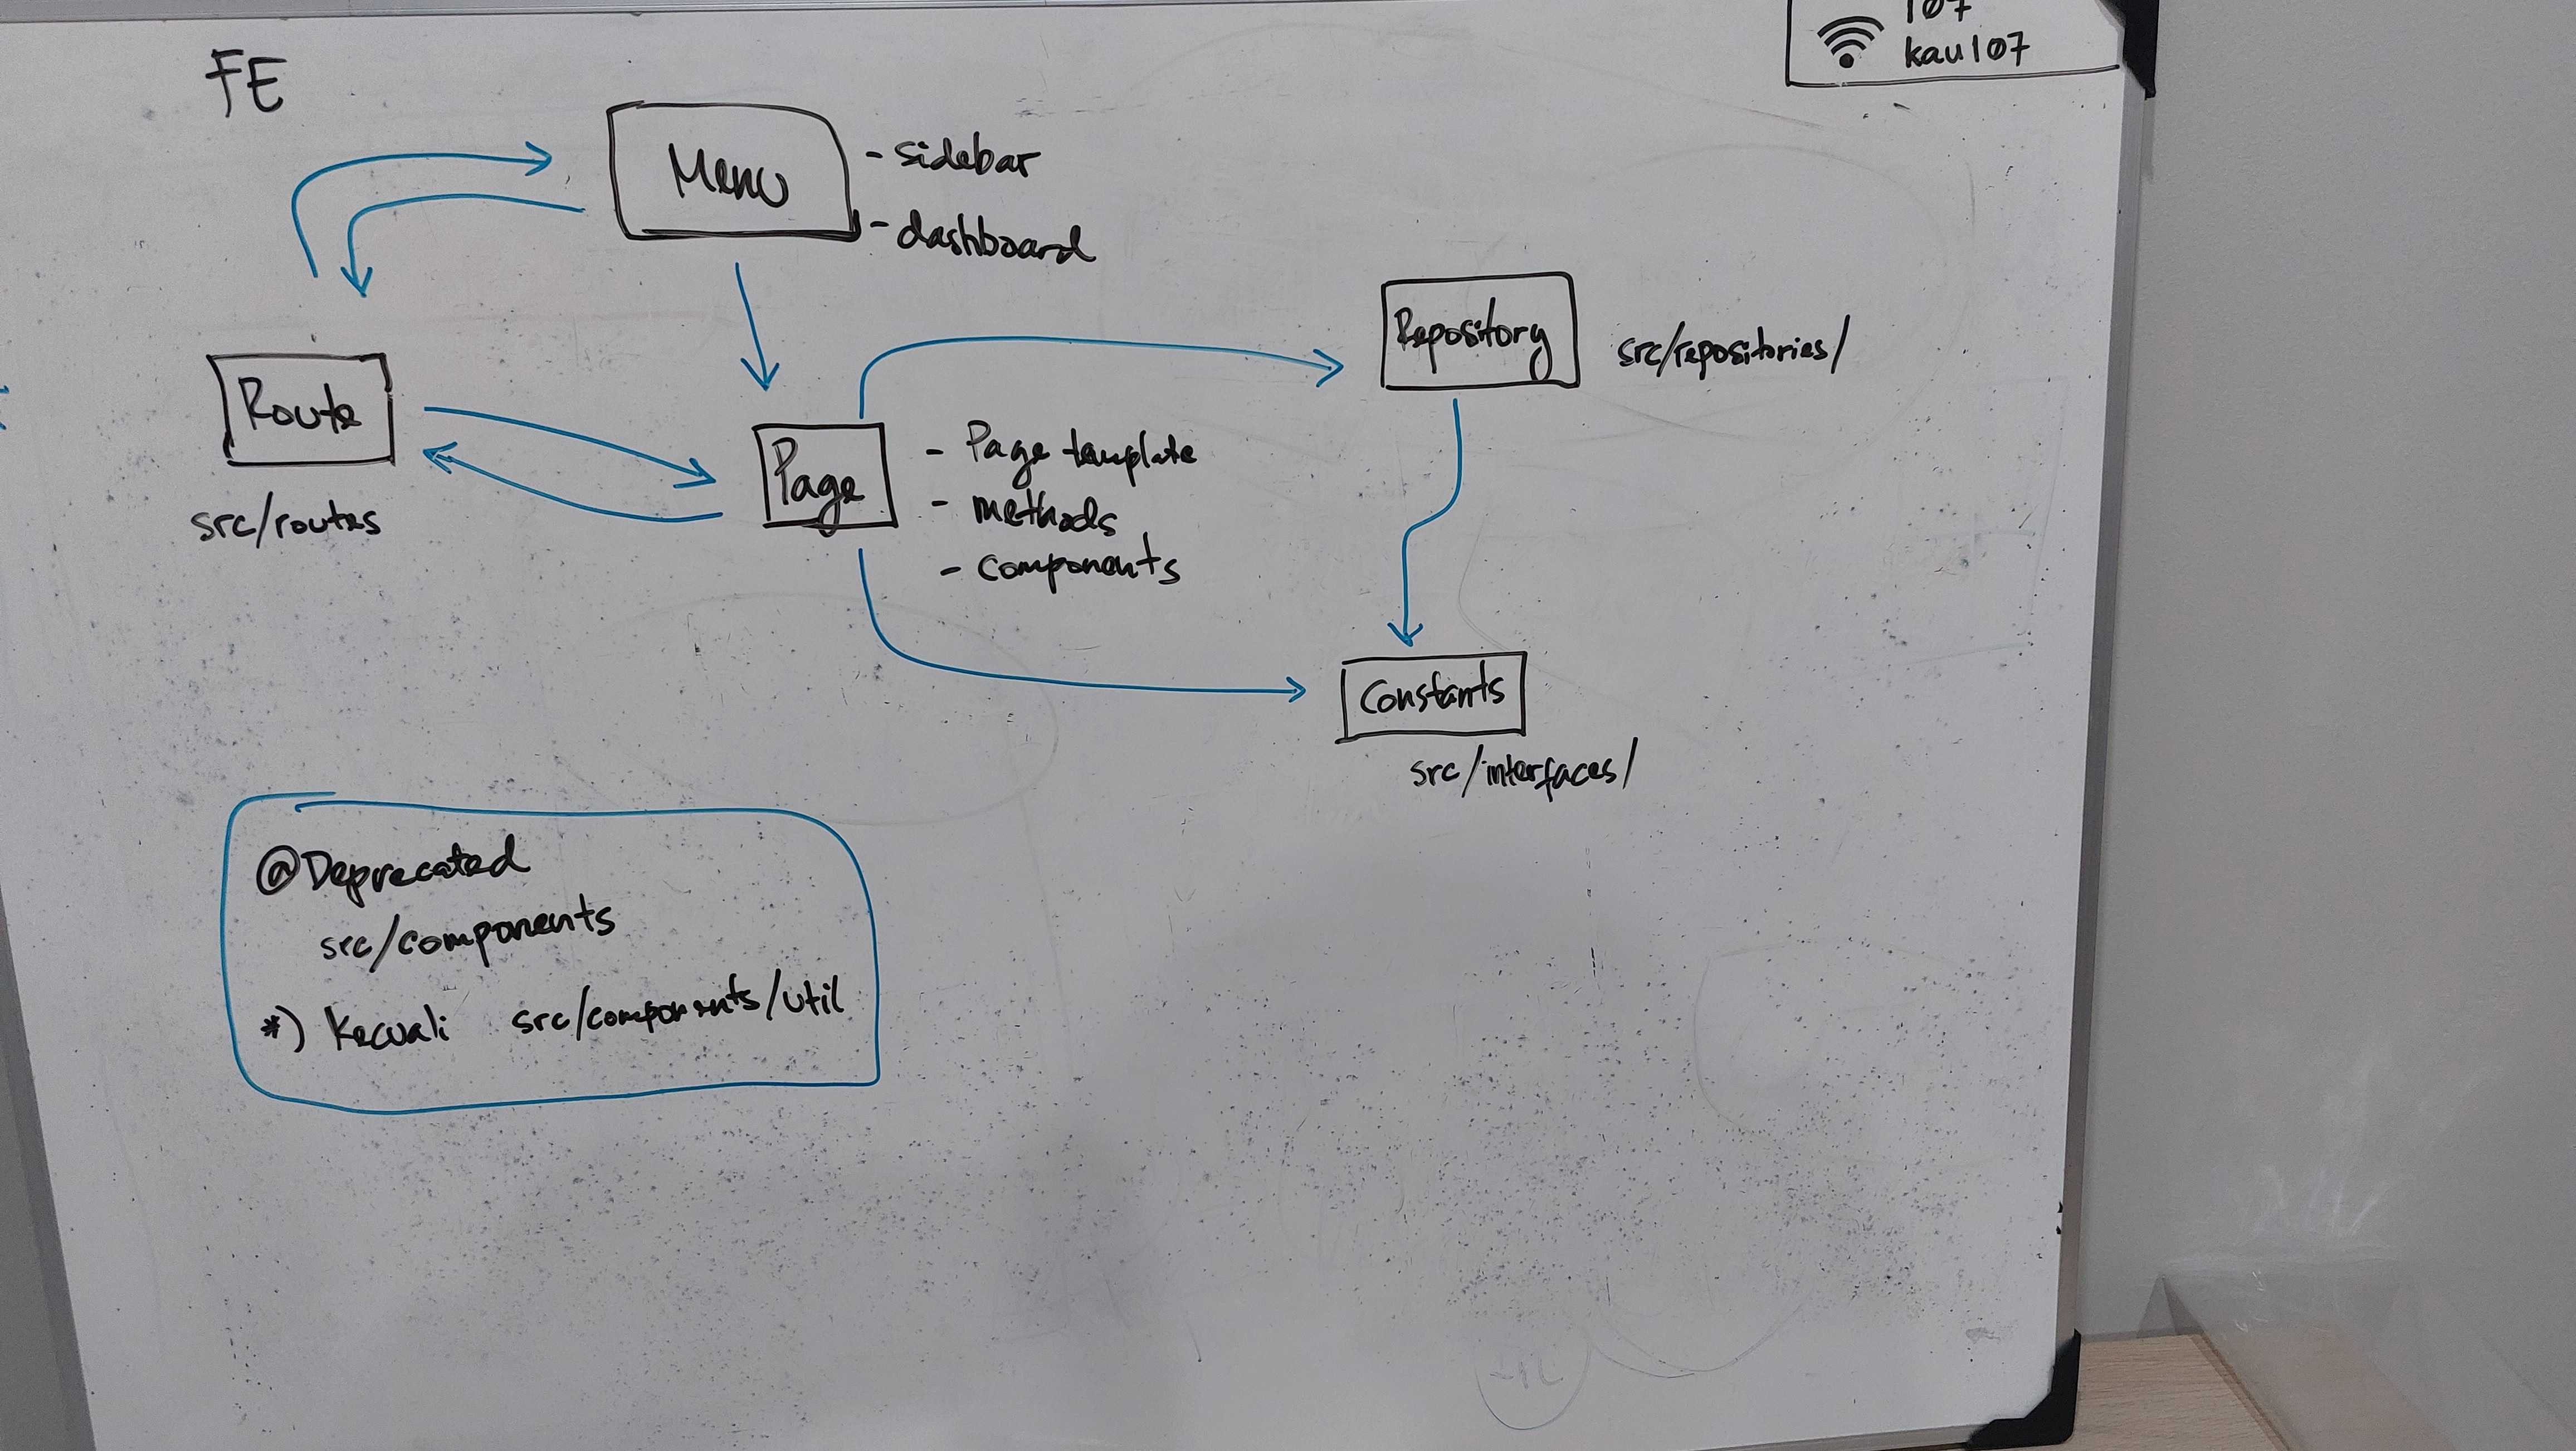 FE
107
kau107
Menu
- sidebar
- dashboard
Route
src/routes
Page
- Page template
- methods
- components
Repository
src/repositories/
Constants
src/interfaces/
@Deprecated
src/components
*) Kecuali src/components/util